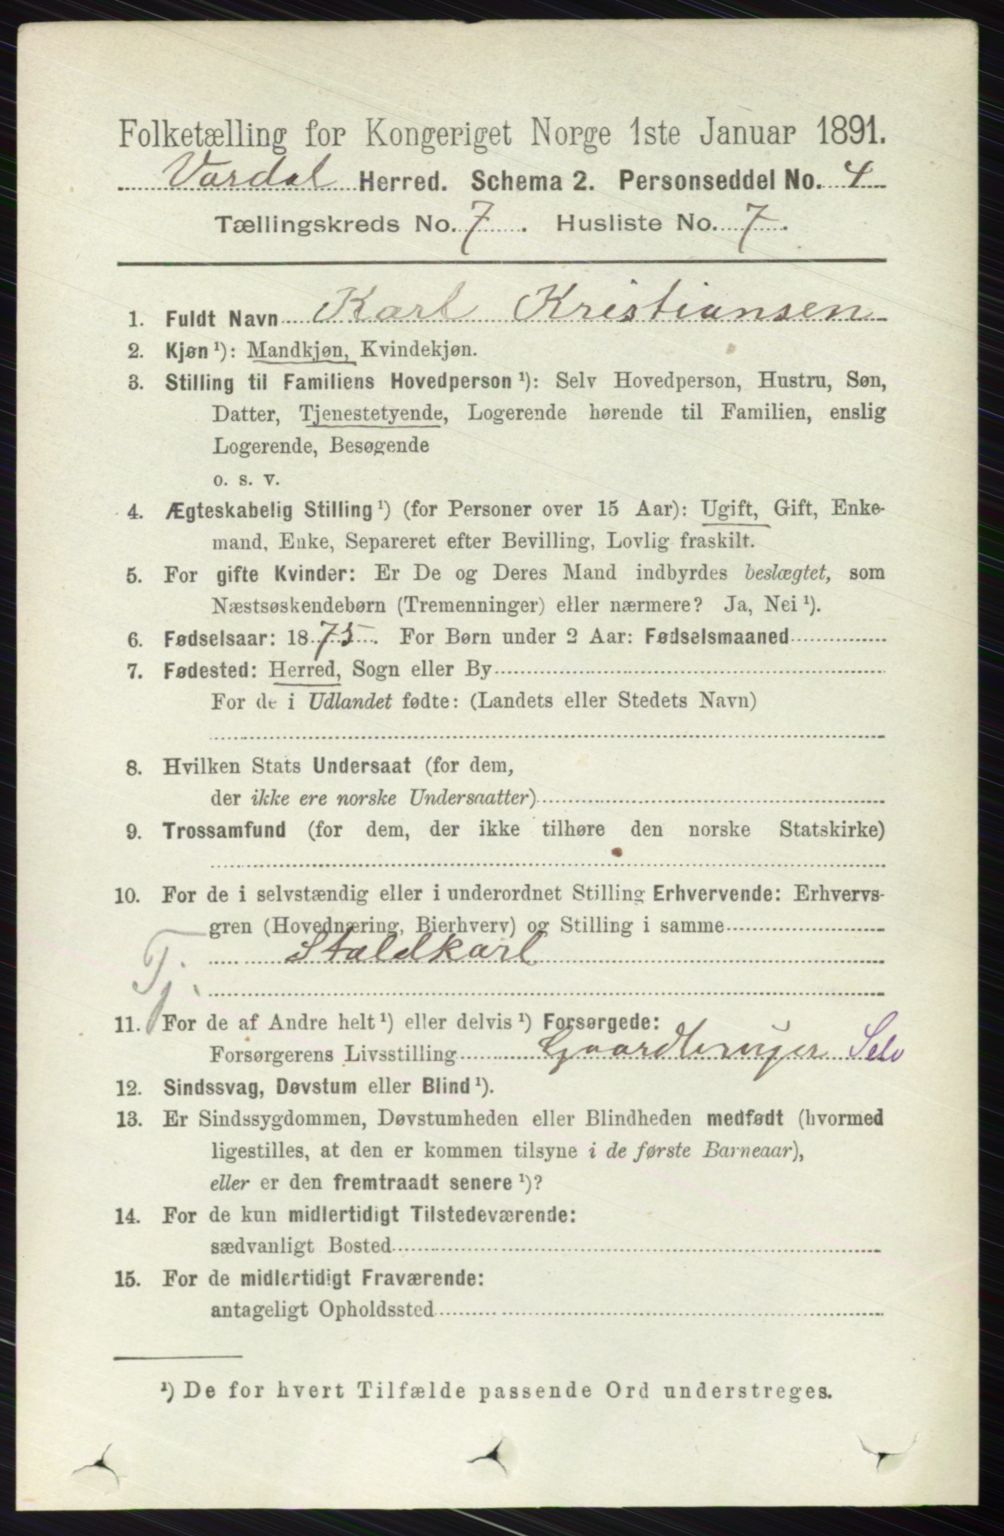 Folketælling for Kongeriget Norge 1ste Januar 1891.
Vardal Herred. Schema 2. Personseddel No. 4
Tællingskreds No. 7. Husliste No. 7.
1. Fuldt Navn Karl Kristiansen
2. Kjøn ¹): Mandkjøn, Kvindekjøn.
3. Stilling til Familiens Hovedperson ¹): Selv Hovedperson, Hustru, Søn,
Datter, Tjenestetyende, Logerende hørende til Familien, enslig
Logerende, Besøgende
o. s. v.
4. Ægteskabelig Stilling ¹) (for Personer over 15 Aar): Ugift, Gift, Enke-
mand, Enke, Separeret efter Bevilling, Lovlig fraskilt.
5. For gifte Kvinder: Er De og Deres Mand indbyrdes beslægtet, som
Næstsøskendebørn (Tremenninger) eller nærmere? Ja, Nei ¹).
6. Fødselsaar: 1875. For Børn under 2 Aar: Fødselsmaaned
7. Fødested: Herred, Sogn eller By
For de i Udlandet fødte: (Landets eller Stedets Navn)
8. Hvilken Stats Undersaat (for dem,
der ikke ere norske Undersaatter)
9. Trossamfund (for dem, der ikke tilhøre den norske Statskirke)
10. For de i selvstændig eller i underordnet Stilling Erhvervende: Erhvervs-
gren (Hovednæring, Bierhverv) og Stilling i samme
Staldkarl
Tj.
11. For de af Andre helt ¹) eller delvis ¹) Forsørgede:
Forsørgerens Livsstilling Gaardbruger Selv
12. Sindssvag, Døvstum eller Blind ¹).
13. Er Sindssygdommen, Døvstumheden eller Blindheden medfødt (hvormed
ligestilles, at den er kommen tilsyne i de første Barneaar),
eller er den fremtraadt senere ¹)?
14. For de kun midlertidigt Tilstedeværende:
sædvanligt Bosted
15. For de midlertidigt Fraværende:
antageligt Opholdssted
¹) De for hvert Tilfælde passende Ord understreges.